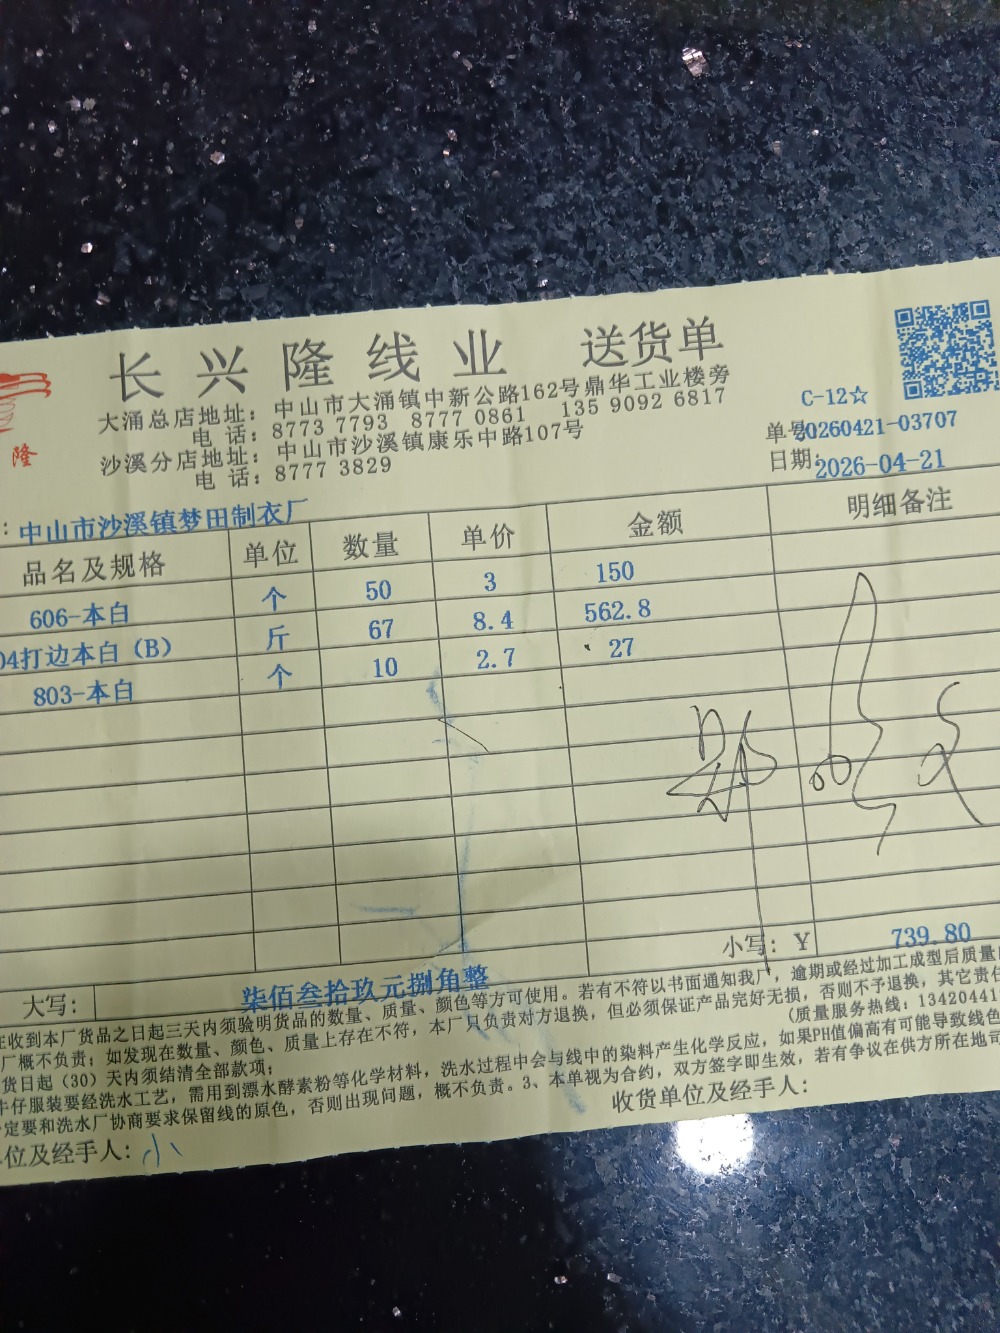 长兴隆线业 送货单
大涌总店地址：中山市大涌镇中新公路162号鼎华工业楼旁
电 话：8773 7793 8777 0861 135 9092 6817
沙溪分店地址：中山市沙溪镇康乐中路107号
电 话：8777 3829
隆
C-12☆
单号 20260421-03707
日期：2026-04-21
：中山市沙溪镇梦田制衣厂
品名及规格 单位 数量 单价 金额 明细备注
606-本白 个 50 3 150
04打边本白（B） 斤 67 8.4 562.8
803-本白 个 10 2.7 27
小写：￥ 739.80
大写： 柒佰叁拾玖元捌角整
收到本厂货品之日起三天内须验明货品的数量、质量、颜色等方可使用。若有不符以书面通知我厂，逾期或经过加工成型后质量
厂概不负责；如发现在数量、颜色、质量上存在不符，本厂只负责对方退换，但必须保证产品完好无损，否则不予退换，其它责任
货日起（30）天内须结清全部款项； （质量服务热线：13420441
牛仔服装要经洗水工艺，需用到漂水酵素粉等化学材料，洗水过程中会与线中的染料产生化学反应，如果PH值偏高有可能导致线色
定要和洗水厂协商要求保留线的原色，否则出现问题，概不负责。3、本单视为合约，双方签字即生效，若有争议在供方所在地司
位及经手人：小 收货单位及经手人：